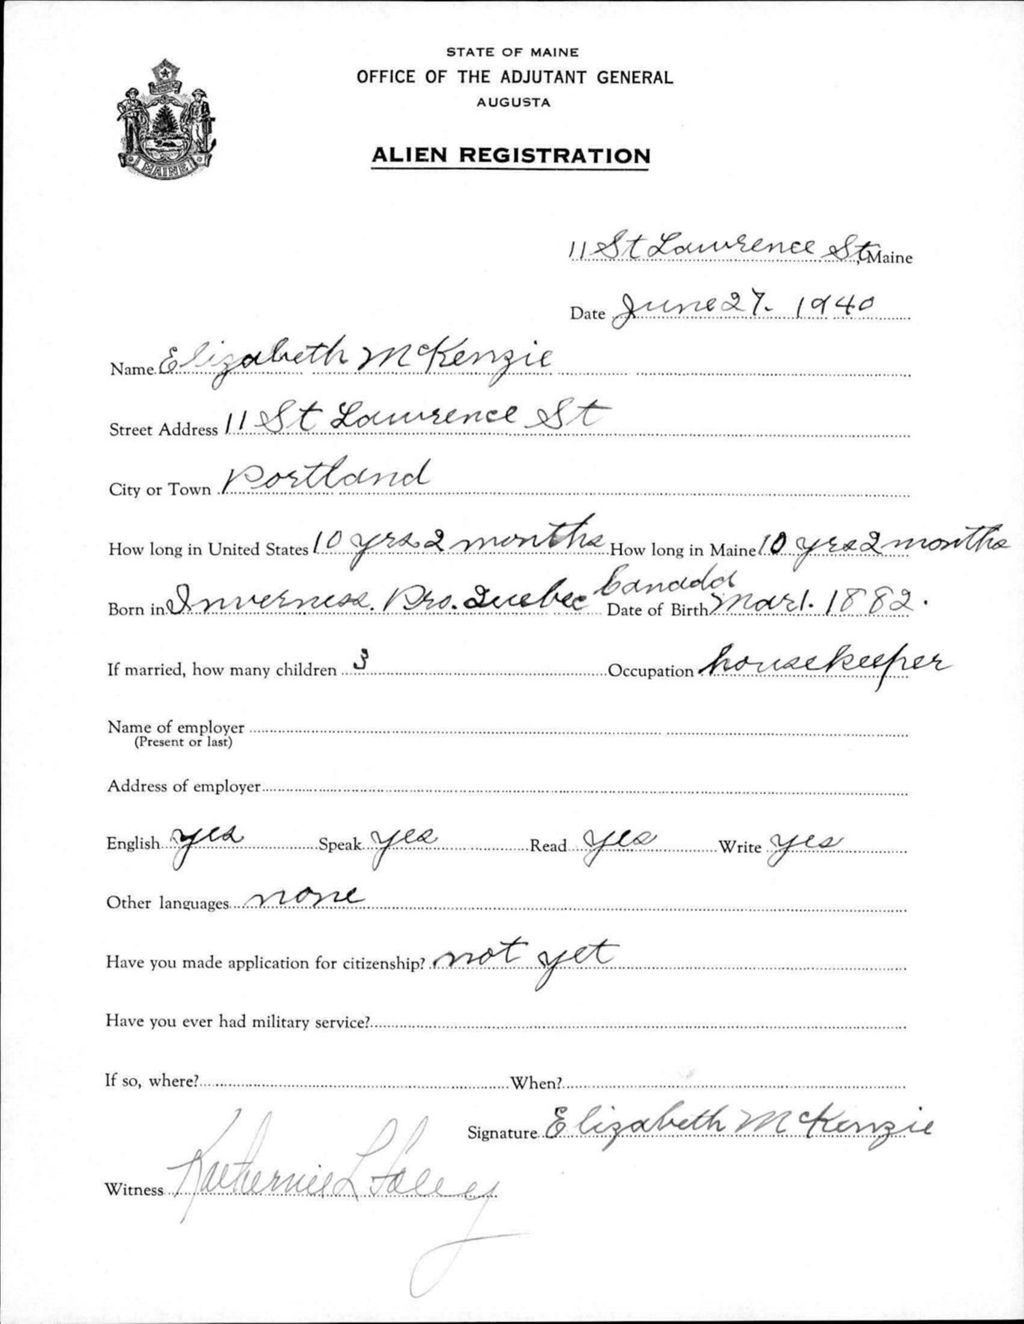 STATE OF MAINE
OFFICE OF THE ADJUTANT GENERAL
AUGUSTA
ALIEN REGISTRATION
MAINE
11 St Lawrence St, Maine
Date June 27. 1940
Name Elizabeth McKenzie
Street Address 11 St Lawrence St
City or Town Portland
How long in United States 10 yrs 2 months How long in Maine 10 yrs 2 months
Born in Inverness. Pro. Quebec Canada Date of Birth Mar 1. 1882.
If married, how many children 3 Occupation housekeeper
Name of employer
(Present or last)
Address of employer
English yes Speak yes Read yes Write yes
Other languages none
Have you made application for citizenship? not yet
Have you ever had military service?
If so, where? When?
Signature Elizabeth McKenzie
Witness Katherine L Foley